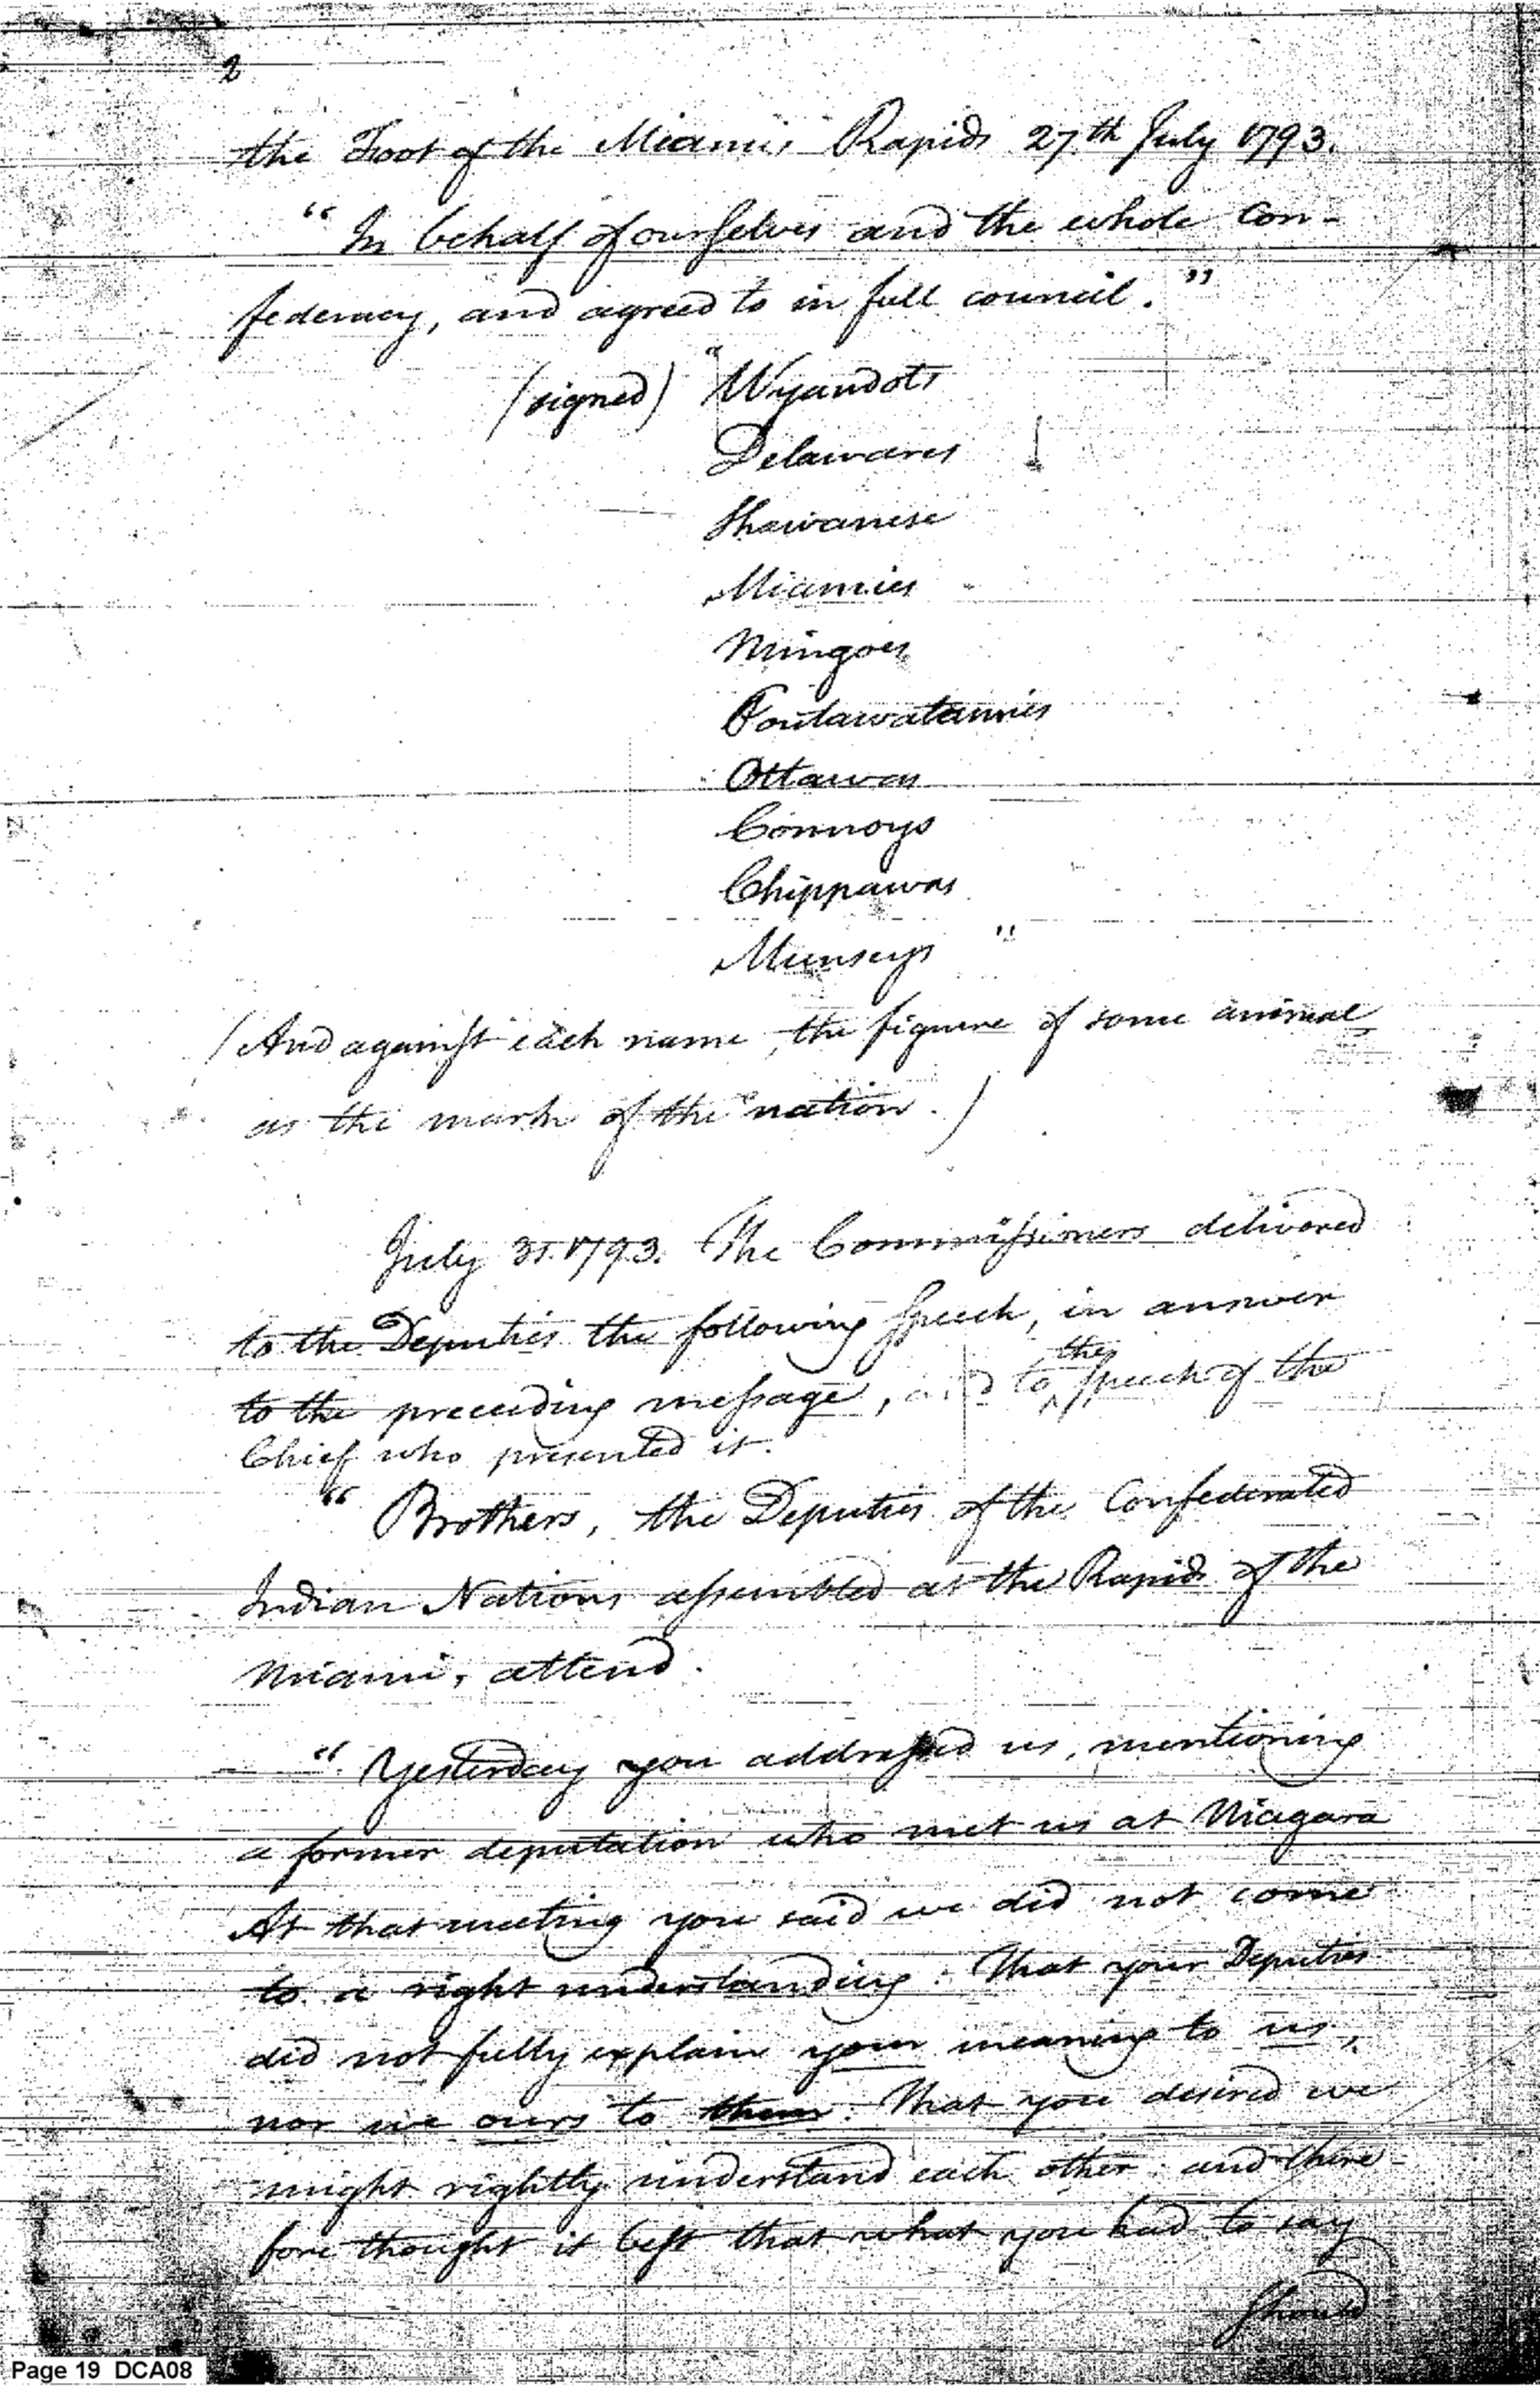 2
the Foot of the Miamis Rapids 27th July 1793.
" In behalf of ourselves and the whole Con-
federacy, and agreed to in full council. "
(signed) " Wyandots
Delawares
Shawanese
Miamies
Mingoes
Poutawatamies
Ottawas
Connoys
Chippawas
Munseys "
(And against each name, the figure of some animal
as the mark of the nation.)
July 31. 1793. The Commissioners delivered
to the Deputies the following speech, in answer
to the preceding message, and to the speech of the
Chief who presented it.
" Brothers, the Deputies of the Confederated
Indian Nations assembled at the Rapids of the
Miami, attend.
" Yesterday you addressed us, mentioning
a former deputation who met us at Niagara
At that meeting you said we did not come
to a right understanding: That your Deputies
did not fully explain your meaning to us,
nor we ours to them: That you desired we
might rightly understand each other: and there-
fore thought it best that what you had to say
should
Page 19 DCA08